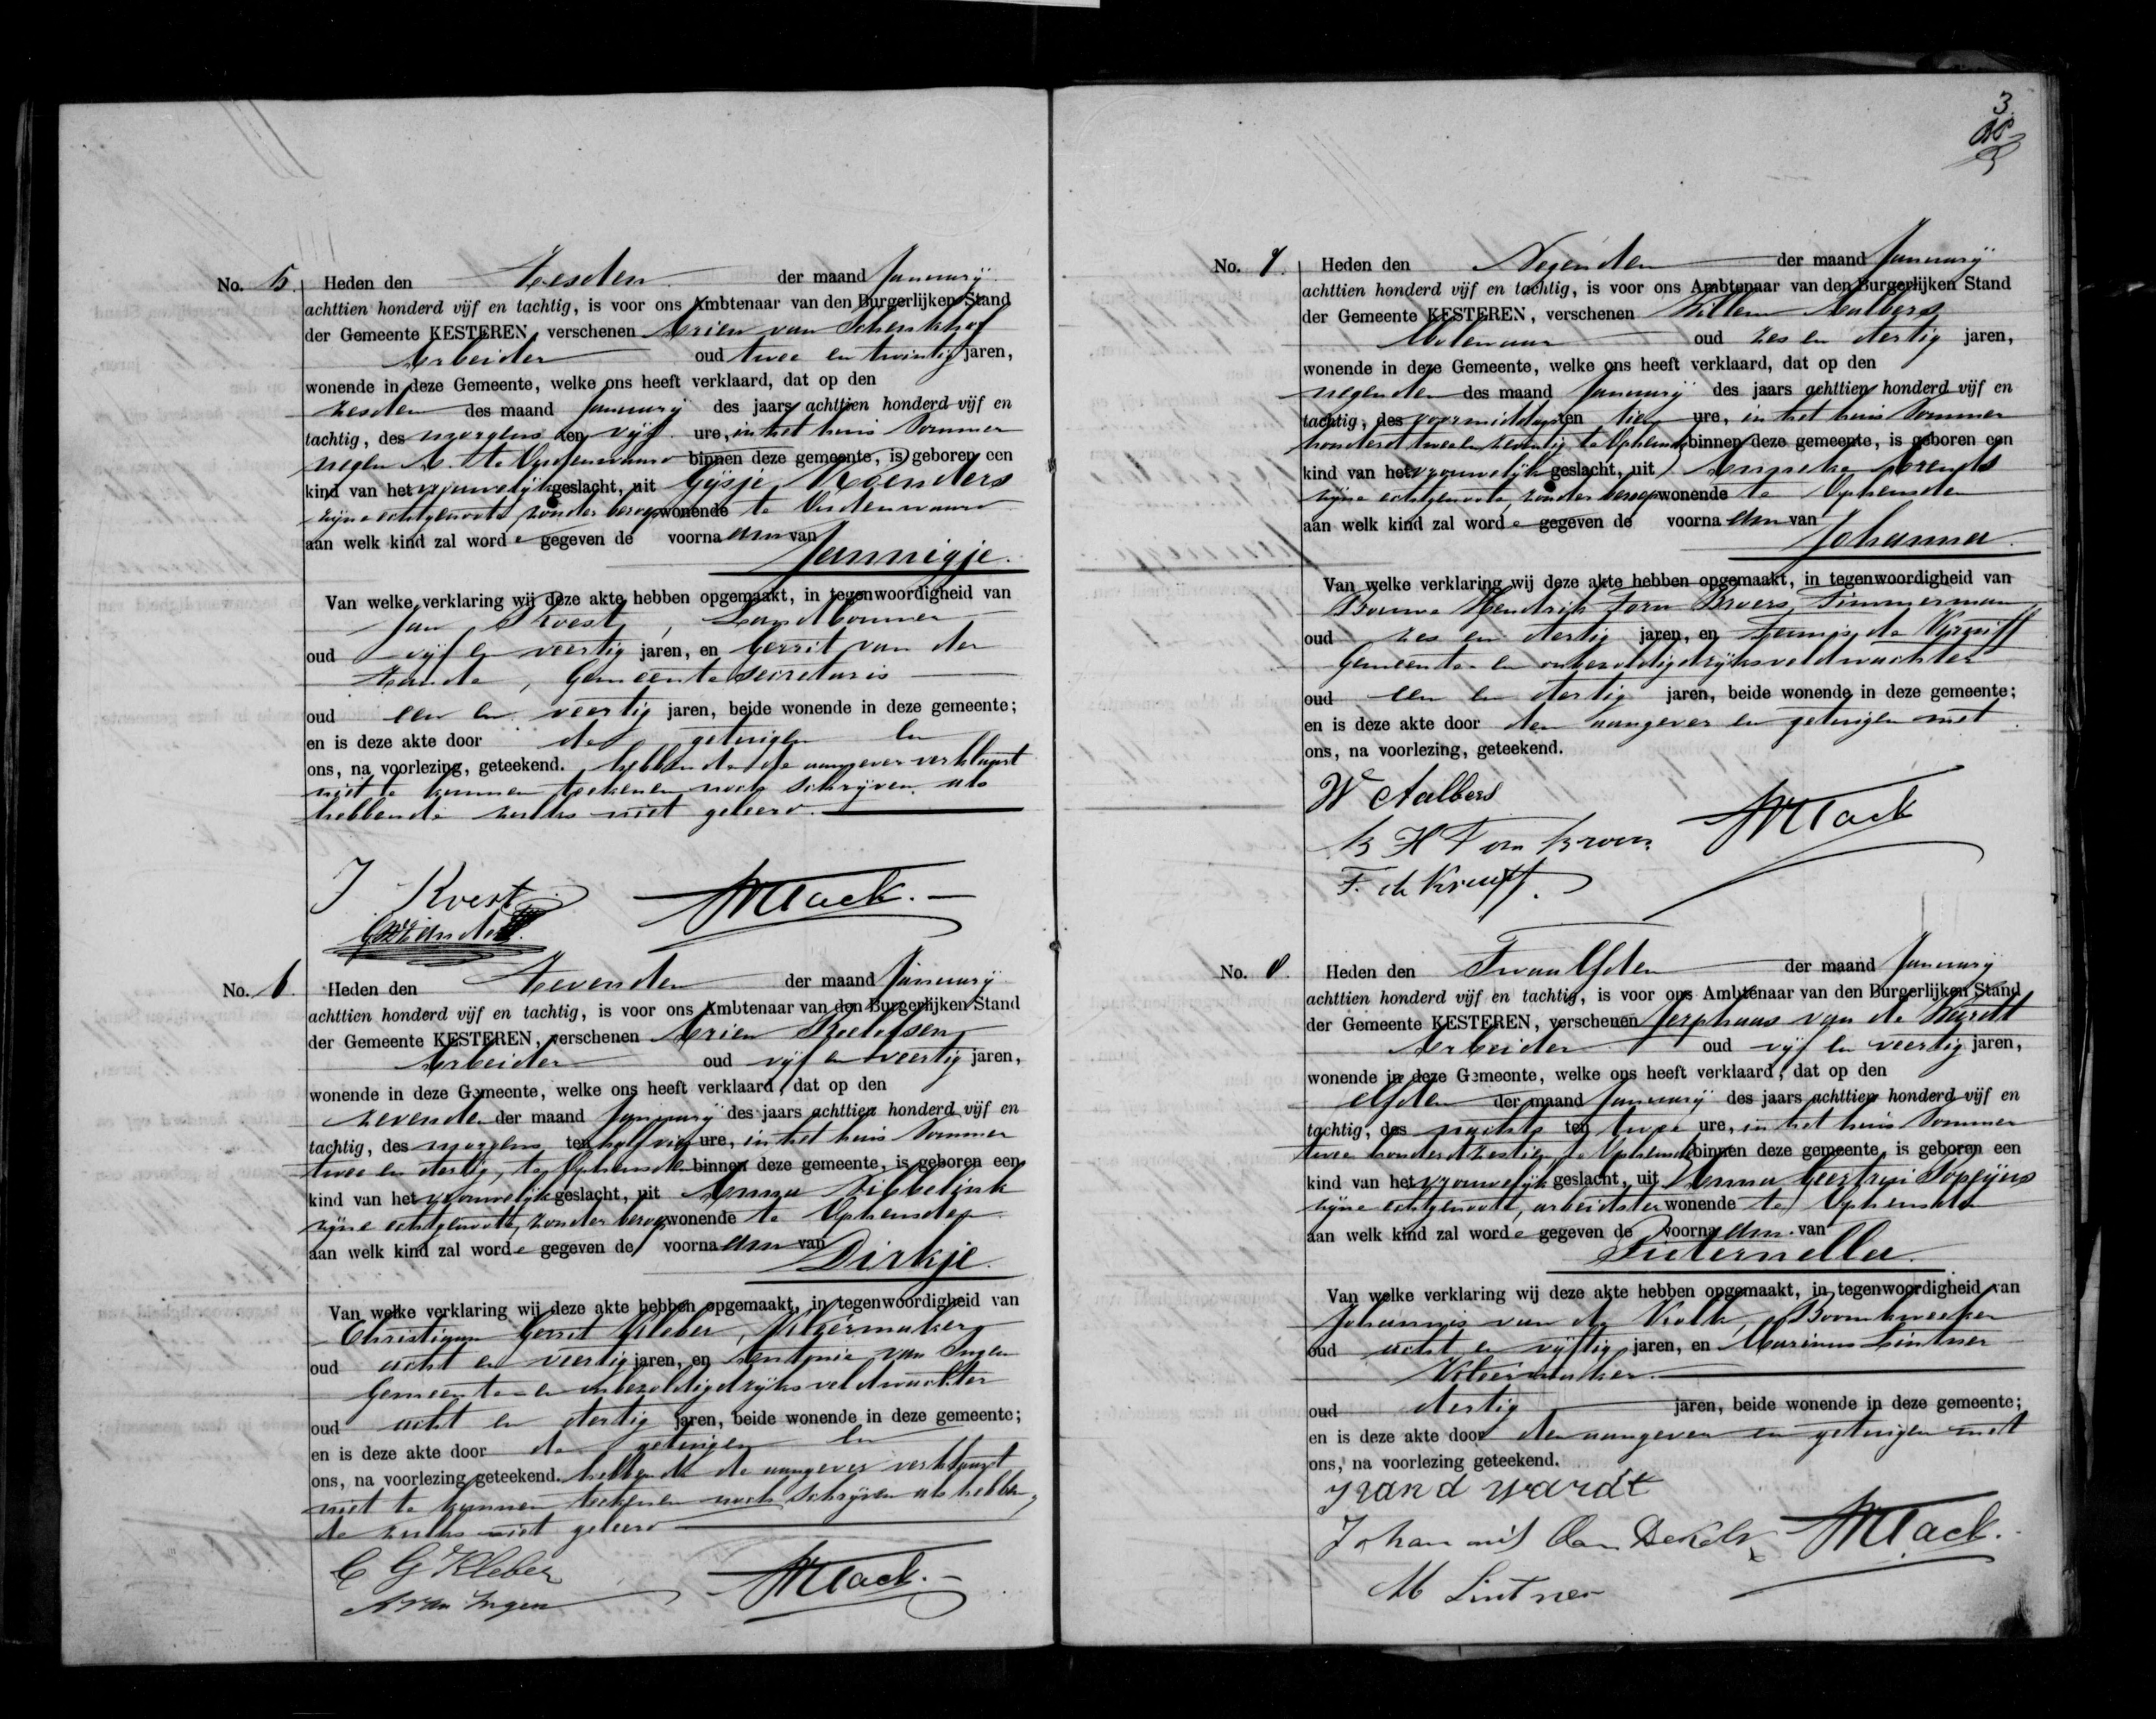 No. 5. Heden den Zesden der maand Januarij
achttien honderd vijf en tachtig, is voor ons Ambtenaar van den Burgerlijken Stand
der Gemeente KESTEREN, verschenen Arien van Schenkhof
Arbeider oud twee en twintig jaren,
wonende in deze Gemeente, welke ons heeft verklaard, dat op den
zesden des maand Januarij des jaars achttien honderd vijf en
tachtig, des morgens ten vijf ure, in het huis Nommer
negen A. te binnen deze gemeente, is geboren een
kind van het vrouwelijk geslacht, uit Gijsje Roenders
zijne echtgenoote, zonder beroep wonende te
aan welk kind zal worde gegeven de voornaam van
Jannigje.
Van welke verklaring wij deze akte hebben opgemaakt, in tegenwoordigheid van
Jan Kroest, Landbouwer
oud vijf en veertig jaren, en Gerrit van der
Zande, Gemeente secretaris
oud een en veertig jaren, beide wonende in deze gemeente;
en is deze akte door de getuigen en
ons, na voorlezing, geteekend. hebbende de aangever verklaard
niet te kunnen teekenen noch schrijven als
hebbende zulks niet geleerd.
J Kroest MTack.
No. 6. Heden den Zevenden der maand Januarij
achttien honderd vijf en tachtig, is voor ons Ambtenaar van den Burgerlijken Stand
der Gemeente KESTEREN, verschenen Arien Roelofsen
Arbeider oud vijf en veertig jaren,
wonende in deze Gemeente, welke ons heeft verklaard, dat op den
zevenden der maand Januarij des jaars achttien honderd vijf en
tachtig, des morgens ten half vier ure, in het huis Nommer
twee en dertig, te Opheusden binnen deze gemeente, is geboren een
kind van het vrouwelijk geslacht, uit Anna Sibbelink
zijne echtgenoote, zonder beroep wonende te Opheusden
aan welk kind zal worde gegeven de voornaam van
Dirkje.
Van welke verklaring wij deze akte hebben opgemaakt, in tegenwoordigheid van
Christiaan Gerrit Kleber, Kleermaker
oud acht en veertig jaren, en Antonie van Ingen
Gemeente- en onbezoldigd rijks veldwachter
oud acht en dertig jaren, beide wonende in deze gemeente;
en is deze akte door de getuigen en
ons, na voorlezing geteekend. hebbende de aangever verklaard
niet te kunnen teekenen noch schrijven als hebben,
de zulks niet geleerd
C G Kleber
A van Ingen MTack.
3
No. 7. Heden den Negenden der maand Januarij
achttien honderd vijf en tachtig, is voor ons Ambtenaar van den Burgerlijken Stand
der Gemeente KESTEREN, verschenen Willem Aalbers
Molenaar oud zes en dertig jaren,
wonende in deze Gemeente, welke ons heeft verklaard, dat op den
negenden des maand Januarij des jaars achttien honderd vijf en
tachtig, des voormiddags ten tien ure, in het huis Nommer
honderd twee en zeventig te Opheusden binnen deze gemeente, is geboren een
kind van het vrouwelijk geslacht, uit Arends
zijne echtgenoote, zonder beroep wonende te Opheusden
aan welk kind zal worde gegeven de voornaam van
Johanna.
Van welke verklaring wij deze akte hebben opgemaakt, in tegenwoordigheid van
Hendrik Torn Broers, Timmerman
oud zes en dertig jaren, en Teunis de Kruiff
Gemeente- en onbezoldigd rijksveldwachter
oud een en dertig jaren, beide wonende in deze gemeente;
en is deze akte door den aangever en getuigen met
ons, na voorlezing, geteekend.
W Aalbers
B H Torn Broers MTack
T. de Kruyff.
No. 8. Heden den Twaalfden der maand Januarij
achttien honderd vijf en tachtig, is voor ons Ambtenaar van den Burgerlijken Stand
der Gemeente KESTEREN, verschenen Jerphaas van de Weerdt
Arbeider oud vijf en veertig jaren,
wonende in deze Gemeente, welke ons heeft verklaard, dat op den
elfden der maand Januarij des jaars achttien honderd vijf en
tachtig, des nachts ten twee ure, in het huis Nommer
twee honderd zestien, te Opheusden binnen deze gemeente, is geboren een
kind van het vrouwelijk geslacht, uit Anna Geertrui
zijne echtgenoote, arbeidster wonende te Opheusden
aan welk kind zal worde gegeven de voornaam van
Pieternella.
Van welke verklaring wij deze akte hebben opgemaakt, in tegenwoordigheid van
Johannis van de Kolk, Boomkweeker
oud acht en vijftig jaren, en Marinus Lintner
Kleermaker.
oud dertig jaren, beide wonende in deze gemeente;
en is deze akte door den aangever en getuigen met
ons, na voorlezing geteekend.
J van d wardt
Johannis van De Kolk MTack.
M Lintner